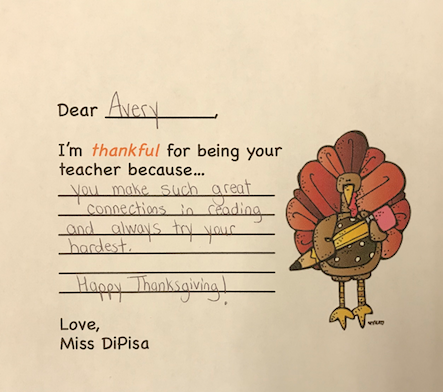 Dear Avery,
I'm thankful for being your
teacher because...
you make such great
connections in reading
and always try your
hardest.
Happy Thanksgiving!
Love,
Miss DiPisa